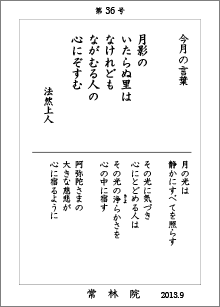 第36号
今月の言葉
月影の
いたらぬ里は
なけれども
ながむる人の
心にぞすむ
法然上人
月の光は
静かにすべてを照らす
その光に気づき
心にとどめる人は
その光の浄らかさを
心の中に宿す
阿弥陀さまの
大きな慈悲が
心に宿るように
常林院
2013.9